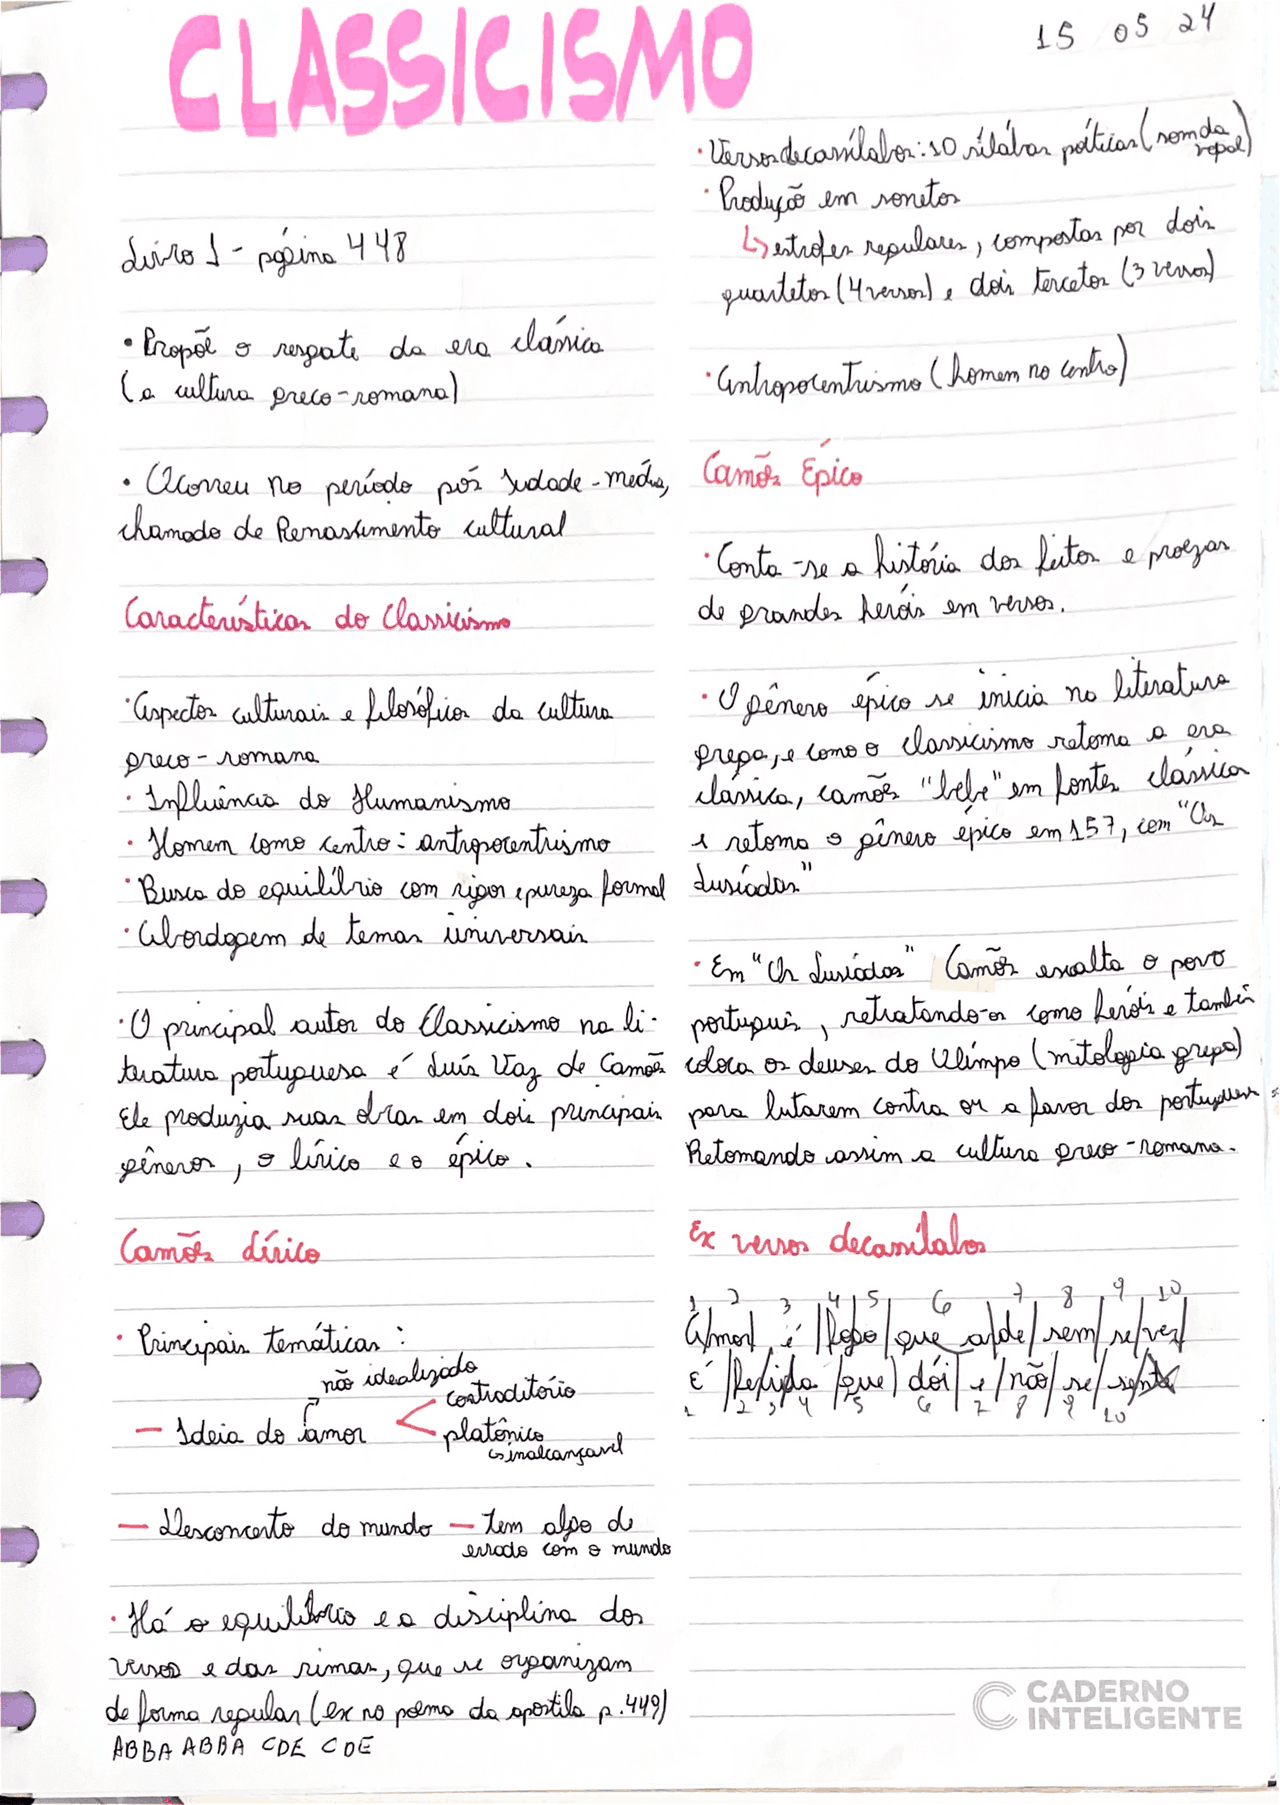 CLASSICISMO
15 05 24
Livro 1 - página 448
• Propõe o resgate da era clássica
(a cultura greco-romana)
• Ocorreu no período pós Idade-média,
chamado de Renascimento cultural
Características do Classicismo
• Aspectos culturais e filosóficos da cultura
greco-romana
• Influência do Humanismo
• Homem como centro: antropocentrismo
• Busca do equilíbrio com rigor e pureza formal
• Abordagem de temas universais
• O principal autor do Classicismo na li-
teratura portuguesa é Luís Vaz de Camões
Ele produzia suas obras em dois principais
gêneros, o lírico e o épico.
Camões Lírico
• Principais temáticas:
não idealizado
— Ideia do amor
contraditório
platônico
↳ inalcançavel
— Desconcerto do mundo — tem algo de
errado com o mundo
• Há o equilíbrio e a disciplina dos
versos e das rimas, que se organizam
de forma regular (ex no poema da apostila p. 449)
ABBA ABBA CDE CDE
• Versos decassílabos: 10 sílabas poéticas (som da
vogal)
• Produção em sonetos
↳ estrofes regulares, compostas por dois
quartetos (4 versos) e dois tercetos (3 versos)
• Antropocentrismo (homem no centro)
Camões Épico
• Conta-se a história dos feitos e proezas
de grandes heróis em versos.
• O gênero épico se inicia na literatura
grega, e como o classicismo retoma a era
clássica, camões "bebe" em fontes clássica
e retoma o gênero épico em 157, com "Os
Lusíadas"
• Em "Os Lusíadas" Camões exalta o povo
português, retratando-os como heróis e também
coloca os deuses do Olimpo (mitologia grega)
para lutarem contra or a favor dos portugueses
Retomando assim a cultura greco-romana.
Ex versos decassílabos
1 2 3 4 5 6 7 8 9 10
A/mor/ é /fogo/ que a/de/ sem/ se/ver/
É /ferida /que/ dói/ e /não/ se/ sente
1 2 3 4 5 6 7 8 9 10
CADERNO
INTELIGENTE